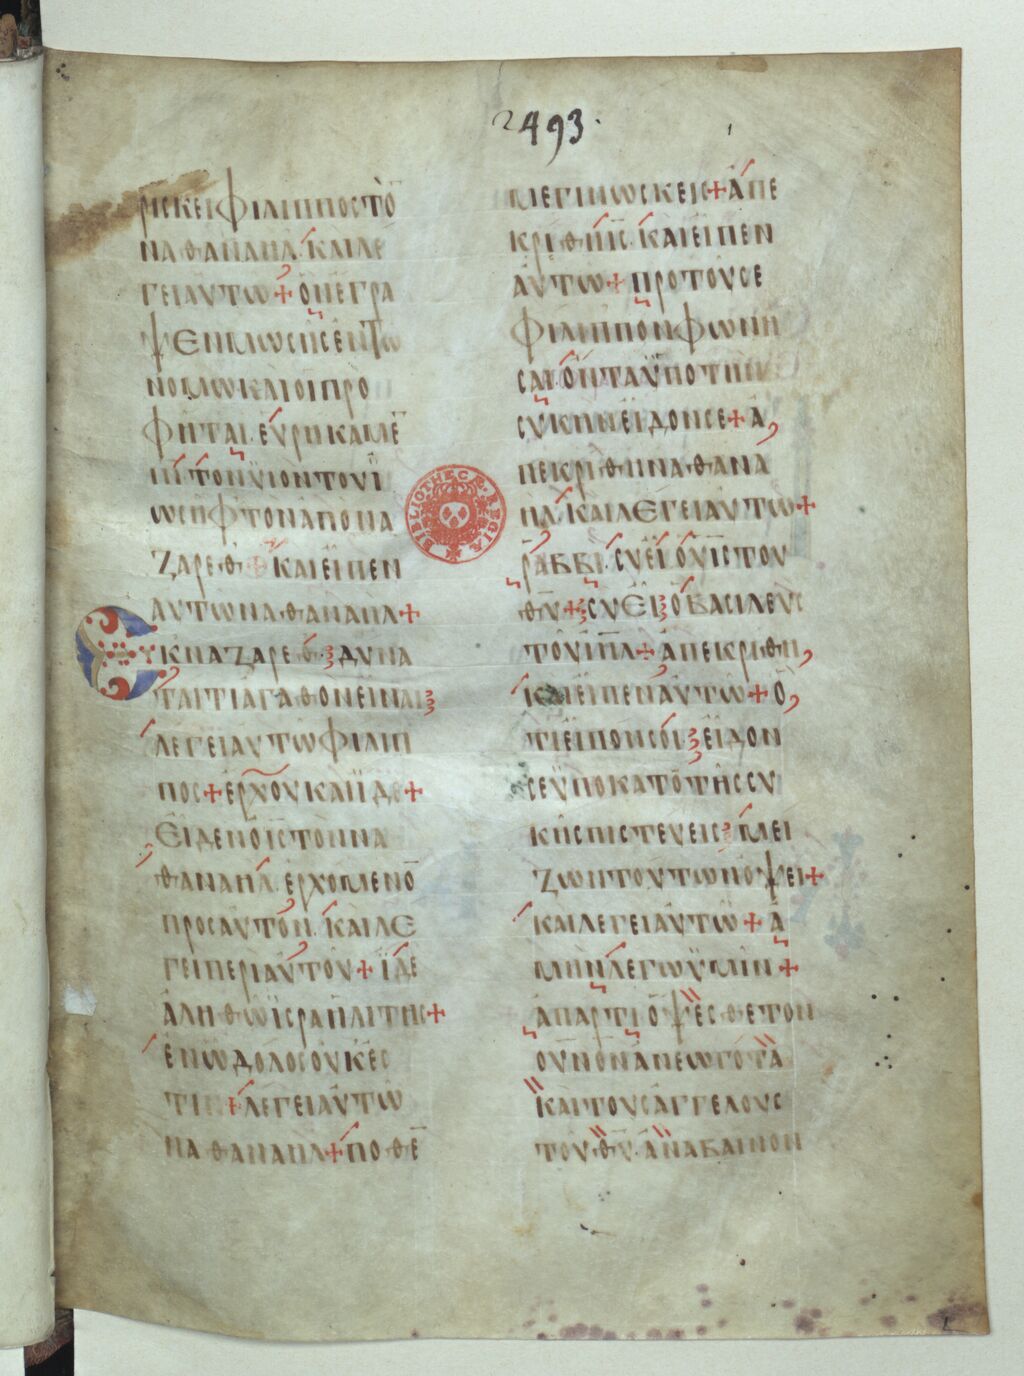 2493.
ρισκει φιλιππος το̅
ναθαναηλ. και λε
γει αυτω + ον εγρα
ψεν μωσης εν τω
νομω και οι προ
φηται. ευρηκαμε̅
ιν̅ τον υιον του ϊ
ωσηφ τον απο να
ζαρεθ + και ειπεν
αυτω ναθαναηλ +
εκ ναζαρεθ δυνα
ται τι αγαθον ειναι
λεγει αυτω φιλιπ
πος + ερχου και ιδε +
Ειδεν ο ι̅ς̅ τον να
θαναηλ. ερχομενο̅
προς αυτον. και λε
γει περι αυτου + ϊδε
αληθω ϊσραηλιτης +
εν ω δολος ουκ εσ
τιν + λεγει αυτω
ναθαναηλ + ποθε̅
με γινωσκεις + απε
κριθη ι̅ς̅. και ειπεν
αυτω + προ του σε
φιλιππον φωνη
σαι. οντα ϋπο την
συκην ειδον σε + α
πεκριθη ναθανα
ηλ. και λεγει αυτω +
ραββι. συ ει ο υ̅ι̅ς̅ του
θ̅υ̅ + συ ει ο βασιλευς
του ι̅η̅λ̅ + απεκριθη
και ειπεν αυτω + ο
τι ειπον σοι ειδον
σε ϋποκατο της συ
κης πιστευεις μει
ζων τουτων οψει +
και λεγει αυτω + α
μην λεγω ϋμιν +
απαρτι οψεσθε τον
ουνον ανεωγοτα
και τους αγγελους
του θ̅υ̅. αναβαινον
BIBLIOTHECÆ REGIÆ